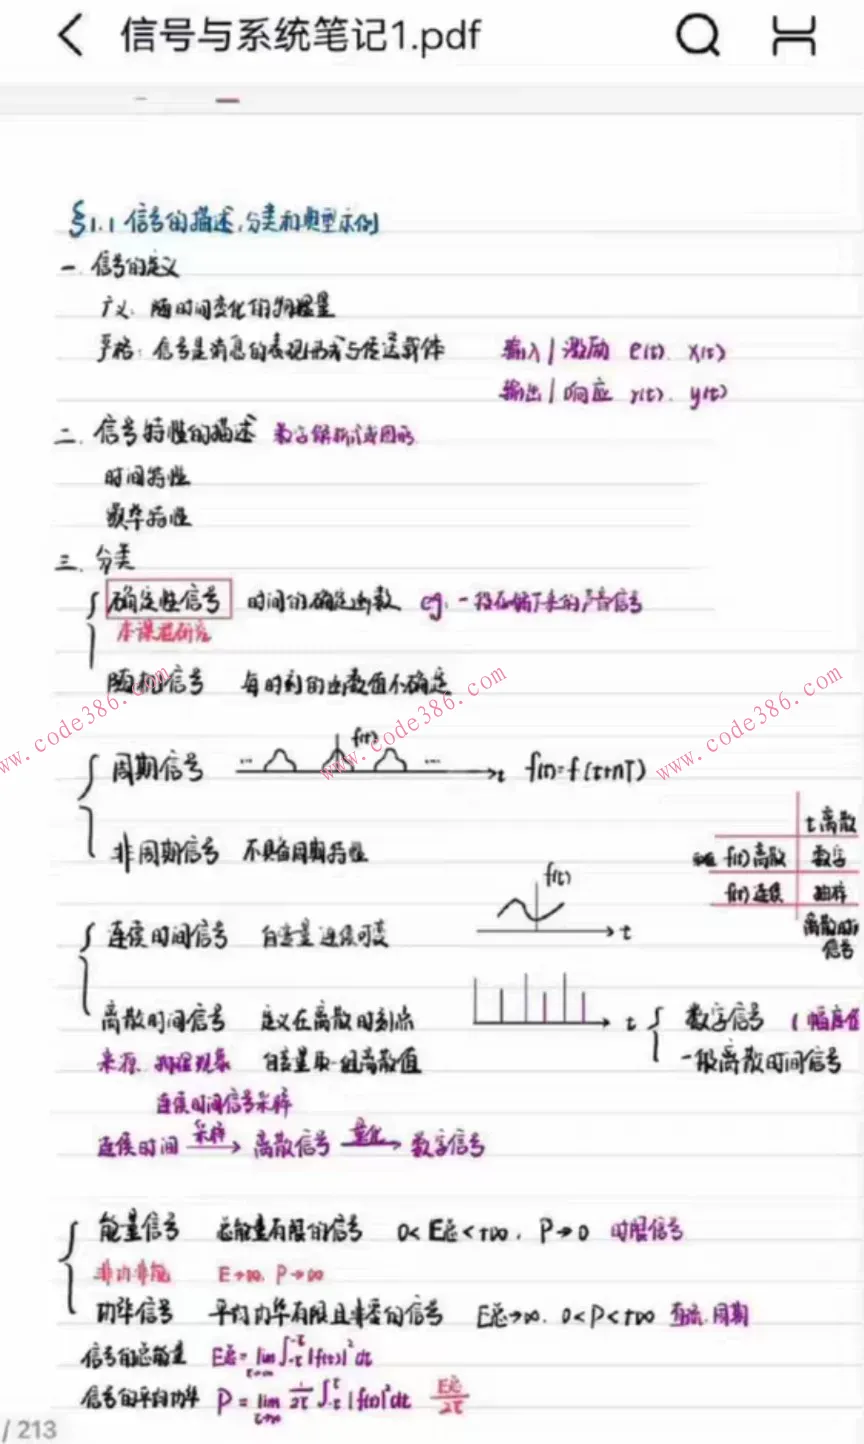 信号与系统笔记1.pdf
§1.1 信号的描述,分类和典型示例
一. 信号的定义
广义: 随时间变化的物理量
严格: 信号是消息的表现形式与传送载体 输入 | 激励 e(t). x(t)
输出 | 响应 r(t). y(t)
二. 信号特性的描述 数学解析式或图形
时间特性
频率特性
三. 分类
确定性信号 时间的确定函数 eg. 一段存储下来的声音信号
本课程研究
随机信号 每时刻的函数值不确定
www.code386.com www.code386.com www.code386.com
周期信号 ... f(t) ... t f(t)=f(t+nT)
t离散
非周期信号 不具备周期特性 f(t)离散 数字
f(t) f(t)连续 抽样
连续时间信号 自变量连续可变 t 离散时间信号
离散时间信号 定义在离散时刻点 t 数字信号 (幅度值
来源. 物理现象 自变量取一组离散值 一般离散时间信号
连续时间信号采样
连续时间 采样→ 离散信号 量化→ 数字信号
能量信号 总能量有限的信号 0<E总<+∞. P→0 时限信号
非功非能 E→∞. P→∞
功率信号 平均功率有限且非零的信号 E总→∞. 0<P<+∞ 直流.周期
信号的总能量 E总= lim τ→∞ ∫-τ^τ |f(t)|² dt
信号的平均功率 P = lim τ→∞ 1/2τ ∫-τ^τ |f(t)|² dt E总/2τ
/ 213